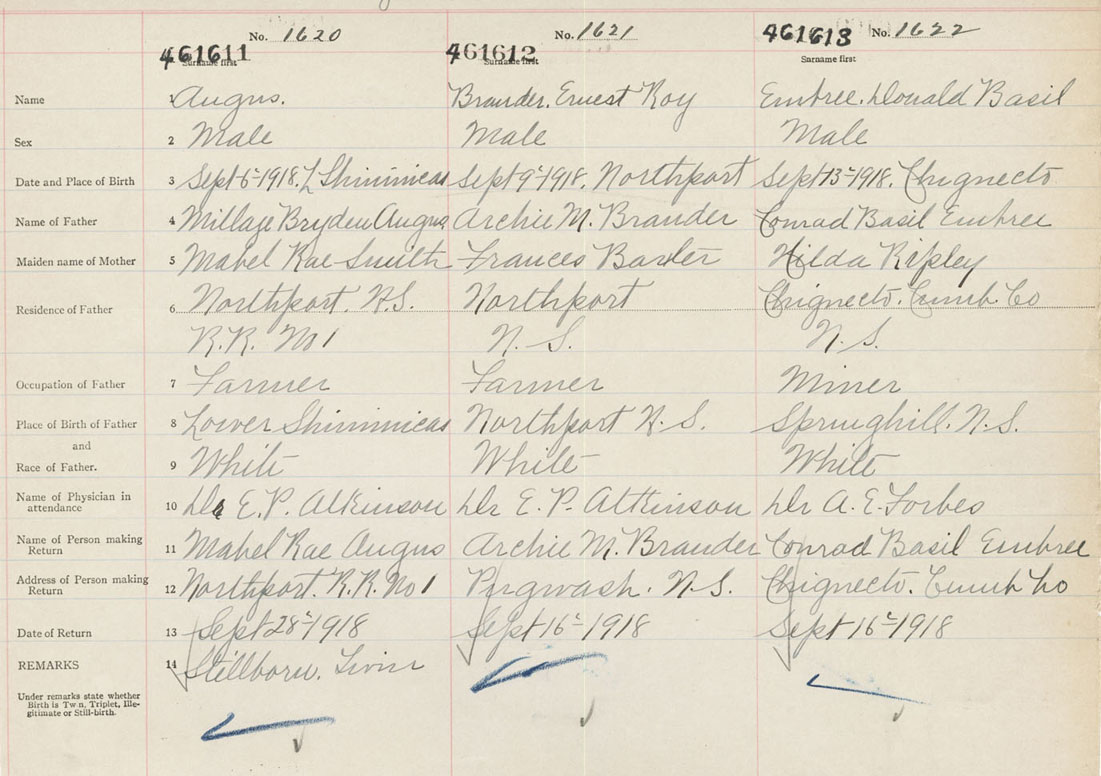 No. 1620 No. 1621 461613 No. 1622
461611 461612
Surname first Surname first Surname first
Name Angus. Brander. Ernest Roy Embree. Donald Basil
Sex 2 Male Male Male
Date and Place of Birth 3 Sept 6-1918. L Shinimicas Sept 9-1918. Northport Sept 13-1918. Chignecto
Name of Father 4 Millage Bryden Angus Archie M. Brander Conrad Basil Embree
Maiden name of Mother 5 Mabel Rae Smith Frances Baxter Hilda Ripley
Residence of Father 6 Northport. N.S. Northport Chignecto. Cumb Co
R.R. No 1 N. S. N. S.
Occupation of Father 7 Farmer Farmer Miner
Place of Birth of Father 8 Lower Shinimicas Northport N. S. Springhill. N.S.
and
Race of Father. 9 White White White
Name of Physician in
attendance 10 Dr E. P. Atkinson Dr E. P. Atkinson Dr A. E. Forbes
Name of Person making
Return 11 Mabel Rae Angus Archie M. Brander Conrad Basil Embree
Address of Person making
Return 12 Northport. R.R. No 1 Pugwash. N.S. Chignecto. Cumb Co
Date of Return 13 Sept 28-1918 Sept 16-1918 Sept 16-1918
REMARKS 14 Stillborn. Twin
Under remarks state whether
Birth is Twn, Triplet, Ille-
gitimate or Still-birth.